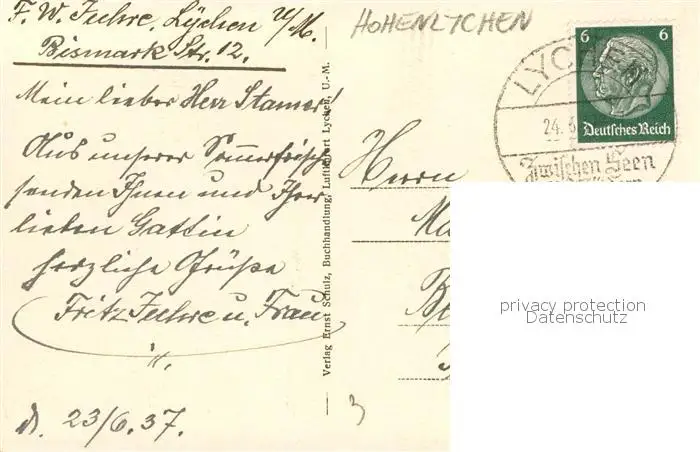 F. W. Fuhre, Lychen U/M.
Bismark Str. 12.
HOHENLYCHEN
Mein lieber Herr Stamer!
Aus unserer Sommerfrische
senden Ihnen und Ihrer
lieben Gattin
herzliche Grüße
Fritz Fuhre u. Frau
d. 23/6.37.
Verlag Ernst Schulz, Buchhandlung, Luftkurort Lychen, U.-M.
Herrn
6 6
Deutsches Reich
LYCHEN
24.6
Zwischen Seen
privacy protection
Datenschutz
3